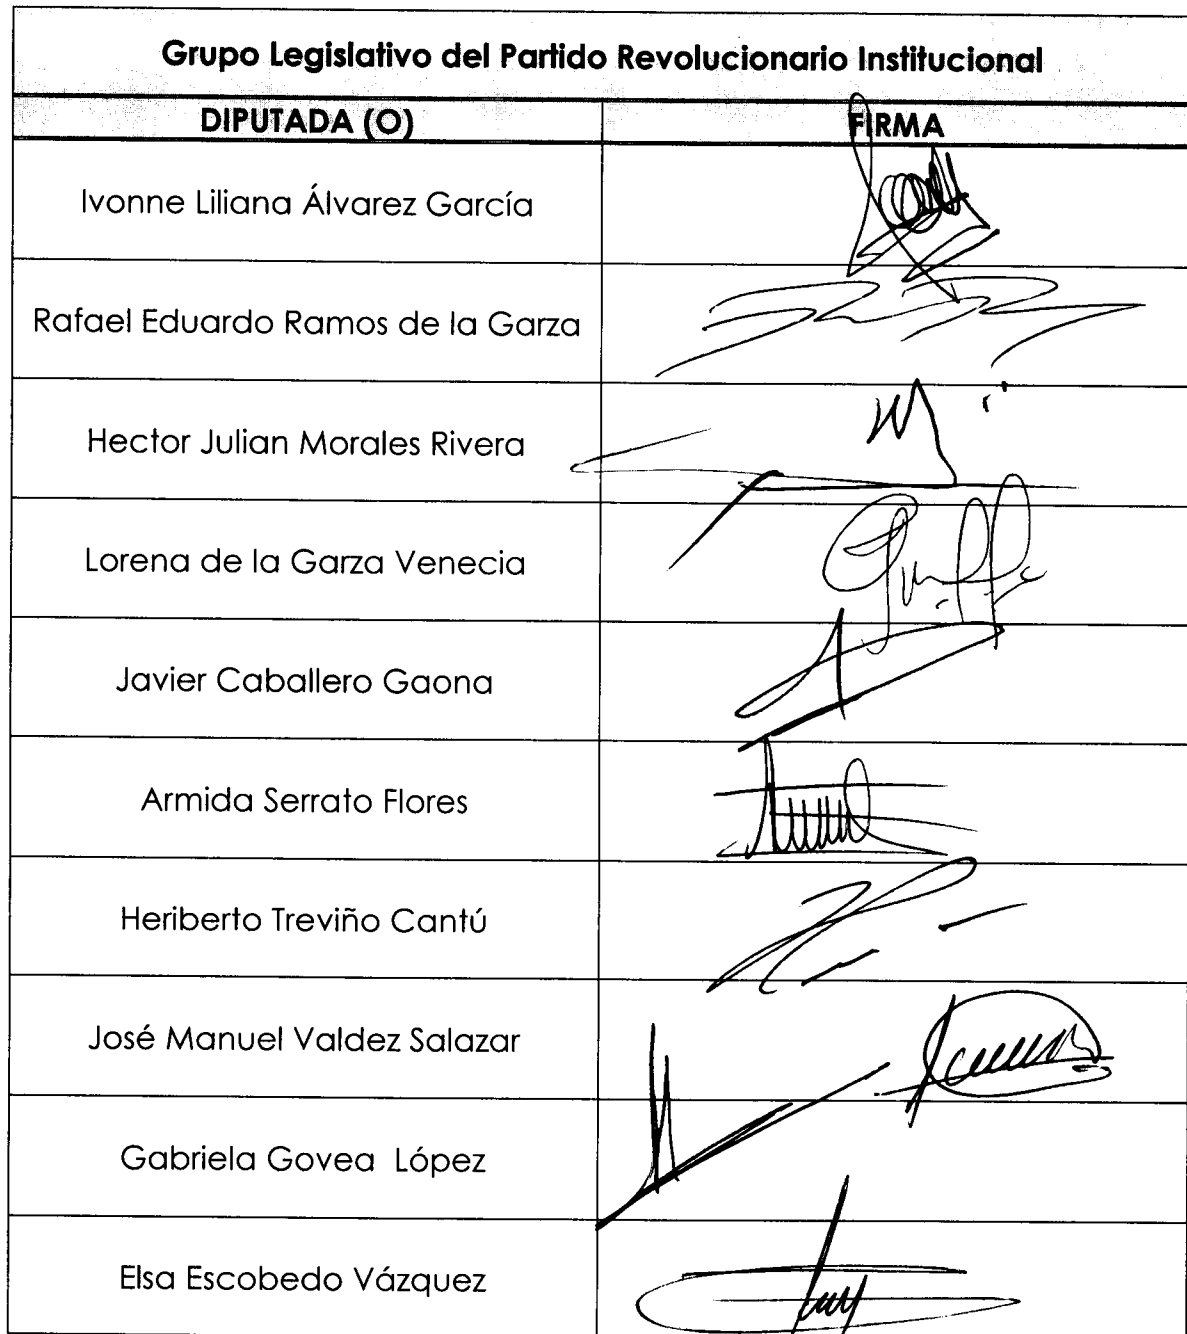 Grupo Legislativo del Partido Revolucionario Institucional
DIPUTADA (O) FIRMA
Ivonne Liliana Álvarez García
Rafael Eduardo Ramos de la Garza
Hector Julian Morales Rivera
Lorena de la Garza Venecia
Javier Caballero Gaona
Armida Serrato Flores
Heriberto Treviño Cantú
José Manuel Valdez Salazar
Gabriela Govea López
Elsa Escobedo Vázquez